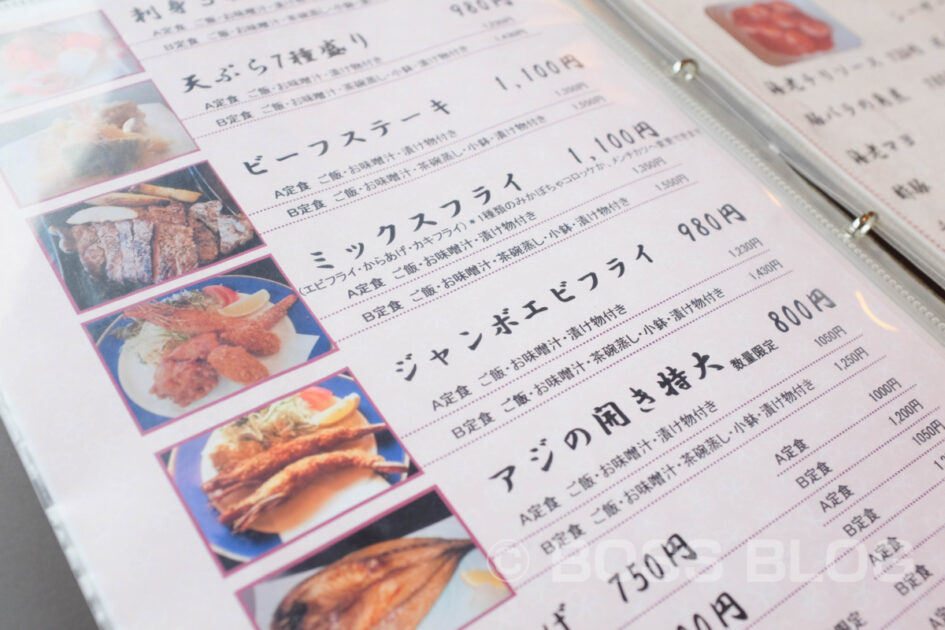 980円
B定食 ご飯・お味噌汁・茶碗蒸し・小鉢・漬け物付き 1,430円
天ぷら7種盛り 1,100円
A定食 ご飯・お味噌汁・漬け物付き 1,350円
B定食 ご飯・お味噌汁・茶碗蒸し・小鉢・漬け物付き 1,550円
ビーフステーキ 1,100円
A定食 ご飯・お味噌汁・漬け物付き 1,350円
B定食 ご飯・お味噌汁・茶碗蒸し・小鉢・漬け物付き 1,550円
ミックスフライ
(エビフライ・からあげ・カキフライ)*1種類のみかぼちゃコロッケか、メンチカツへ変更できます
A定食 ご飯・お味噌汁・漬け物付き
B定食 ご飯・お味噌汁・茶碗蒸し・小鉢・漬け物付き
ジャンボエビフライ 980円
A定食 ご飯・お味噌汁・漬け物付き 1,230円
B定食 ご飯・お味噌汁・茶碗蒸し・小鉢・漬け物付き 1,430円
アジの開き特大 数量限定 800円
A定食 ご飯・お味噌汁・漬け物付き 1050円
B定食 ご飯・お味噌汁・茶碗蒸し・小鉢・漬け物付き 1,250円
750円
A定食 1000円
B定食 1,200円
A定食 1050円
B定食
A定食
B定食
© BOSS BLOG